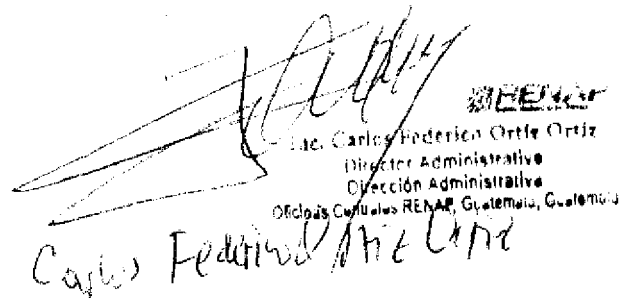 RENAP
Lic. Carlos Federico Ortiz Ortiz
Director Administrativo
Dirección Administrativa
Oficinas Centrales RENAP, Guatemala, Guatemala
Carlos Federico Ortiz Ortiz